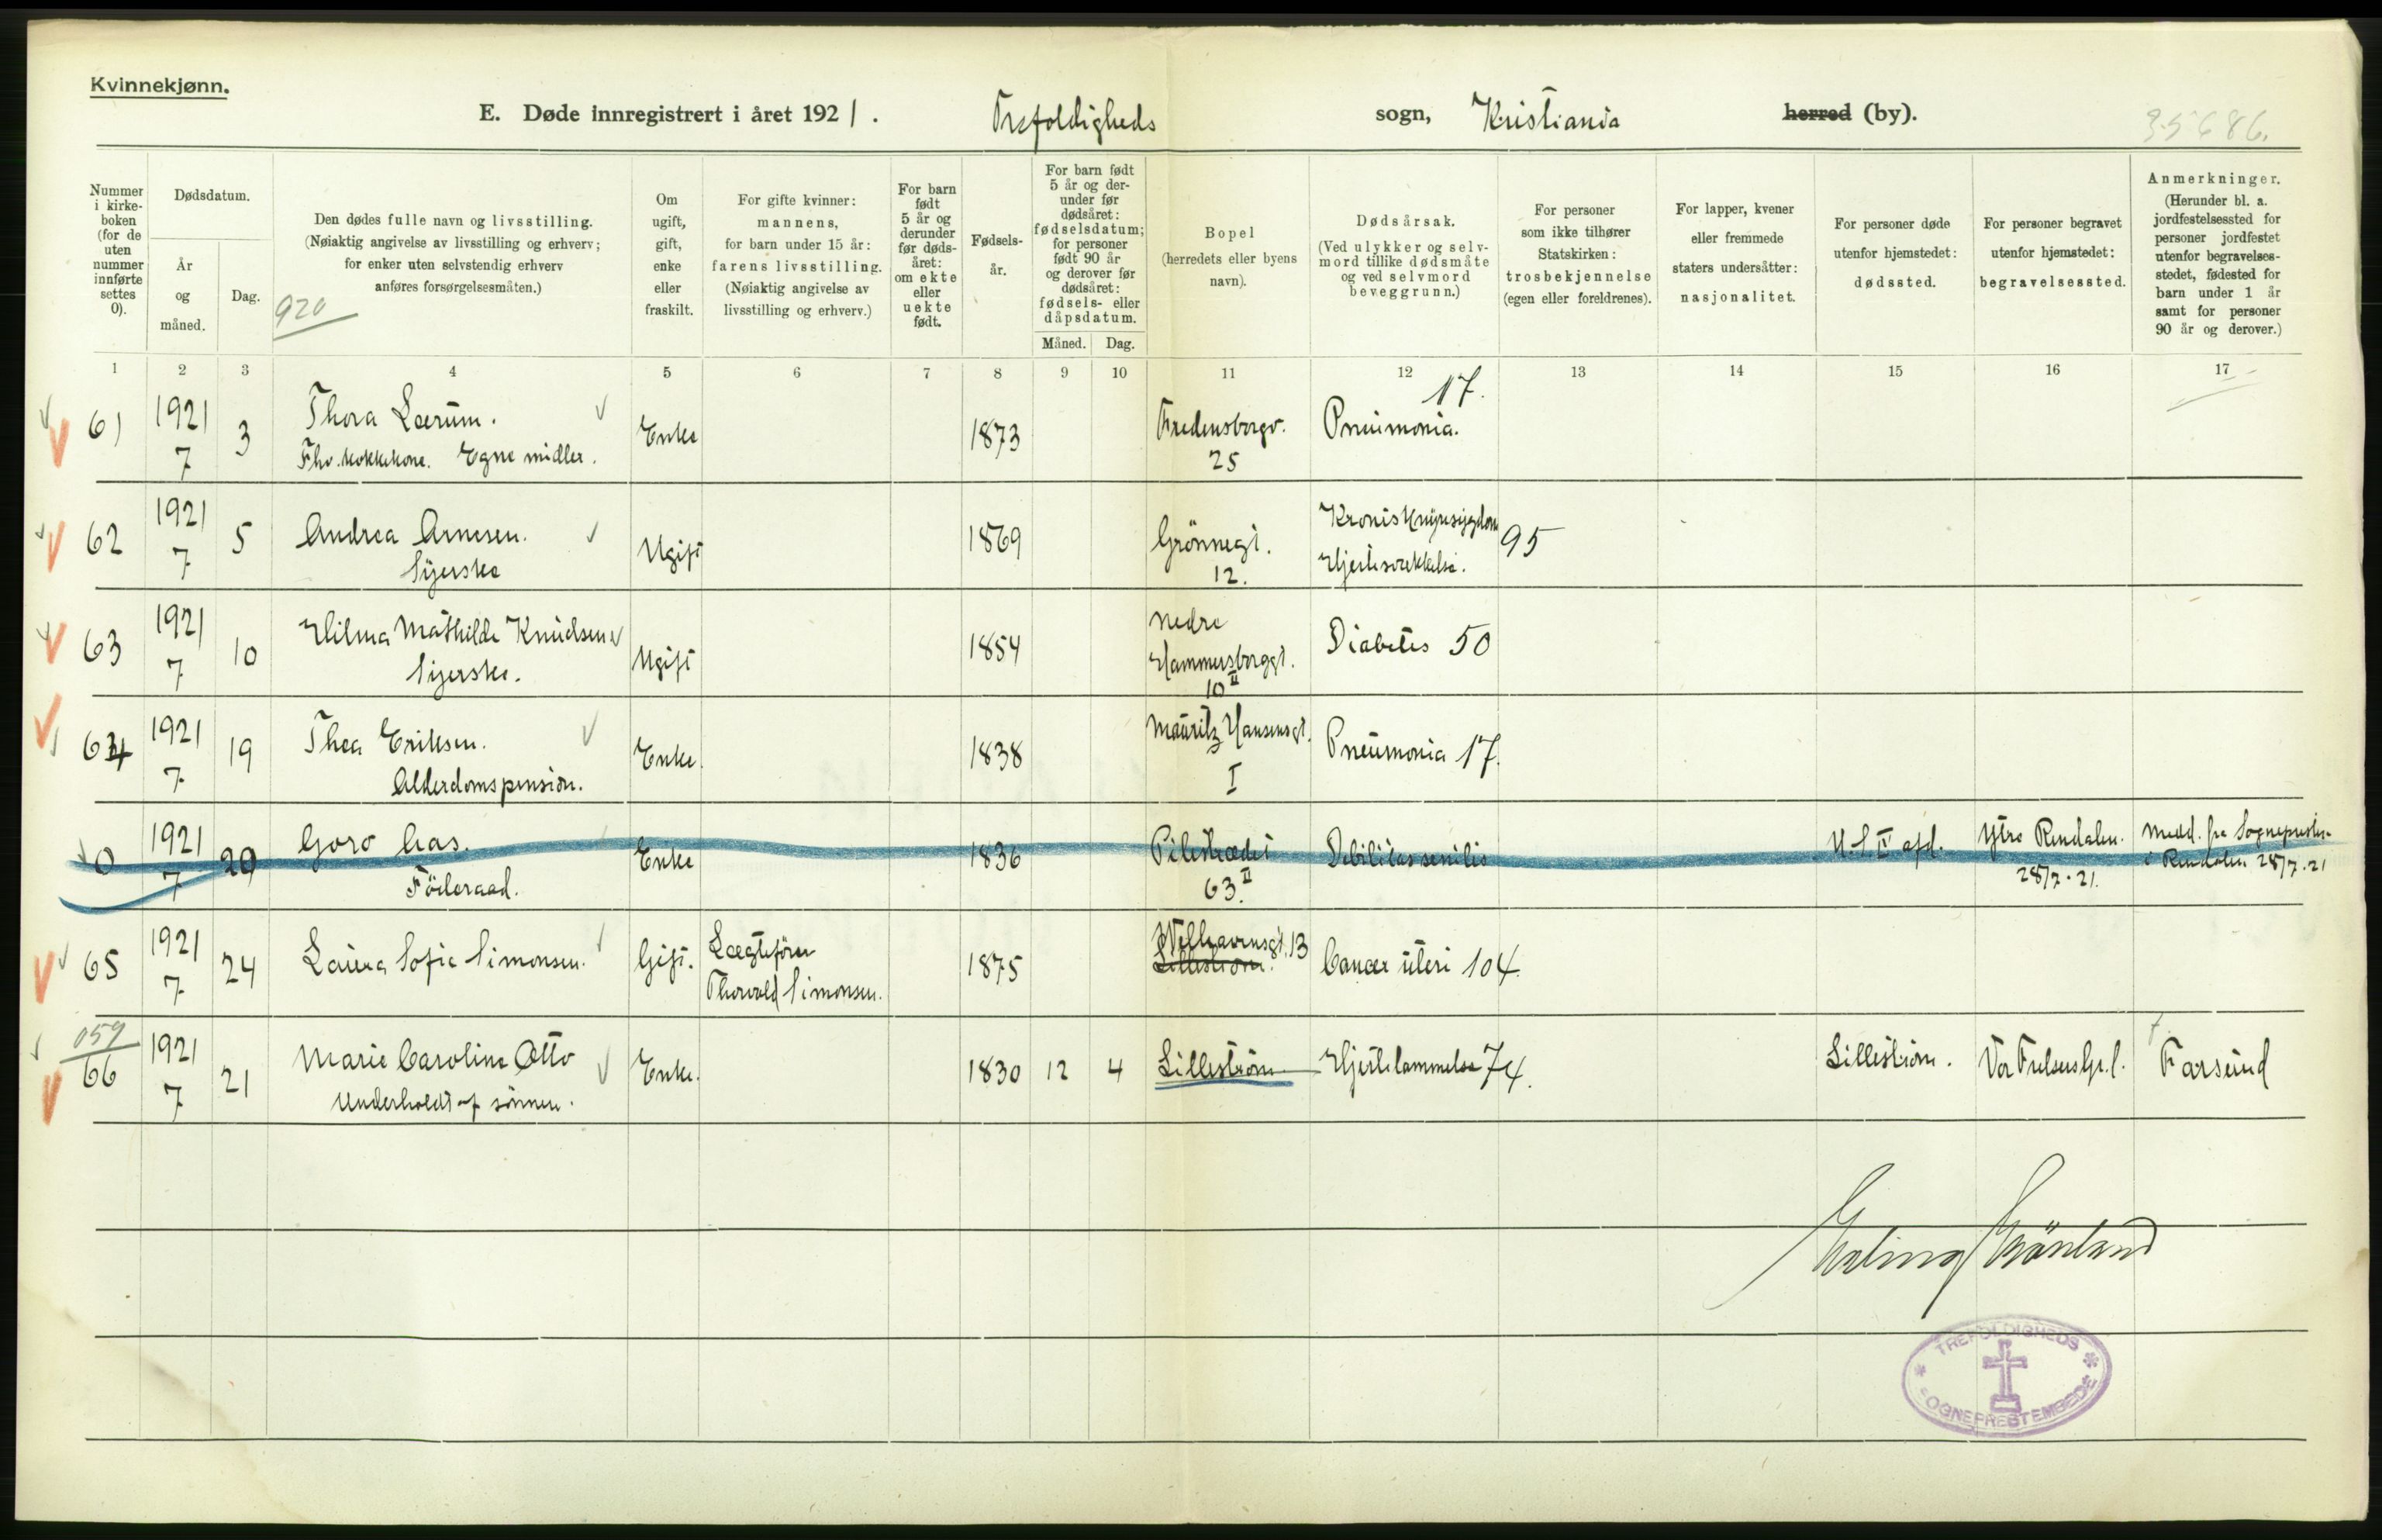 Kvinnekjønn.
E. Døde innregistrert i året 1921. Trefoldigheds sogn, Kristiania herred (by).
35686.
Nummer i kirkeboken (for de uten nummer innførte settes 0).
Dødsdatum.
År og måned.
Dag.
Den dødes fulle navn og livsstilling.
(Nøiaktig angivelse av livsstilling og erhverv;
for enker uten selvstendig erhverv
anføres forsørgelsesmåten.)
920
Om ugift, gift, enke eller fraskilt.
For gifte kvinner:
mannens,
for barn under 15 år:
farens livsstilling.
(Nøiaktig angivelse av
livsstilling og erhverv.)
For barn født 5 år og derunder før dødsåret: om ekte eller uekte født.
Fødselsår.
For barn født 5 år og derunder før dødsåret: fødselsdatum; for personer født 90 år og derover før dødsåret: fødsels- eller dåpsdatum.
Måned. Dag.
Bopel
(herredets eller byens
navn).
Dødsårsak.
(Ved ulykker og selvmord tillike dødsmåte
og ved selvmord
beveggrunn.)
For personer
som ikke tilhører
Statskirken:
trosbekjennelse
(egen eller foreldrenes).
For lapper, kvener
eller fremmede
staters undersåtter:
nasjonalitet.
For personer døde
utenfor hjemstedet:
dødssted.
For personer begravet
utenfor hjemstedet:
begravelsessted.
Anmerkninger.
(Herunder bl. a.
jordfestelsessted for
personer jordfestet
utenfor begravelsesstedet, fødested for
barn under 1 år
samt for personer
90 år og derover.)
1 2 3 4 5 6 7 8 9 10 11 12 13 14 15 16 17
61 1921 7 3 Thora Lærum. Enke 1873 Fredensborgv. 25 Pneumonia. 17.
Fhv. kokkekone. Egne midler.
62 1921 7 5 Andrea Arnesen. Ugift 1869 Grönnegt. 12. Kronisk nyresygdom 95
Syerske Hjertesvekkelse.
63 1921 7 10 Hilma Mathilde Knudsen Ugift 1854 Nedre Hammersborggt. 10 II Diabetes 50
Syerske.
64 1921 7 19 Thea Eriksen. Enke. 1838 Mauritz Hansensgt. I Pneumonia 17.
Alderdomspension.
0 1921 7 20 Goro Aas. Enke 1836 Pilestrædet 63 II. Debilitas senilis U.S. II afd. Ytre Rendalen. 28/7.21. Medd. fra Sognepresten i Rendalen 28/7.21
Föderaad.
65 1921 7 24 Laura Sofie Simonsen. Gift. Lægtefører Thorvald Simonsen. 1875 Welhavensgt. 13 Lilleström. Cancer uteri 104.
059
66 1921 7 21 Marie Caroline Otto Enke. 1830 12 4 Lilleström Hjertelammelse 74. Lilleström. Vor Frelsers Gr.l. Farsund
Underholdt af sönnen.
Erling Grönland
TREFOLDIGHEDS
SOGNEPRESTEMBEDE